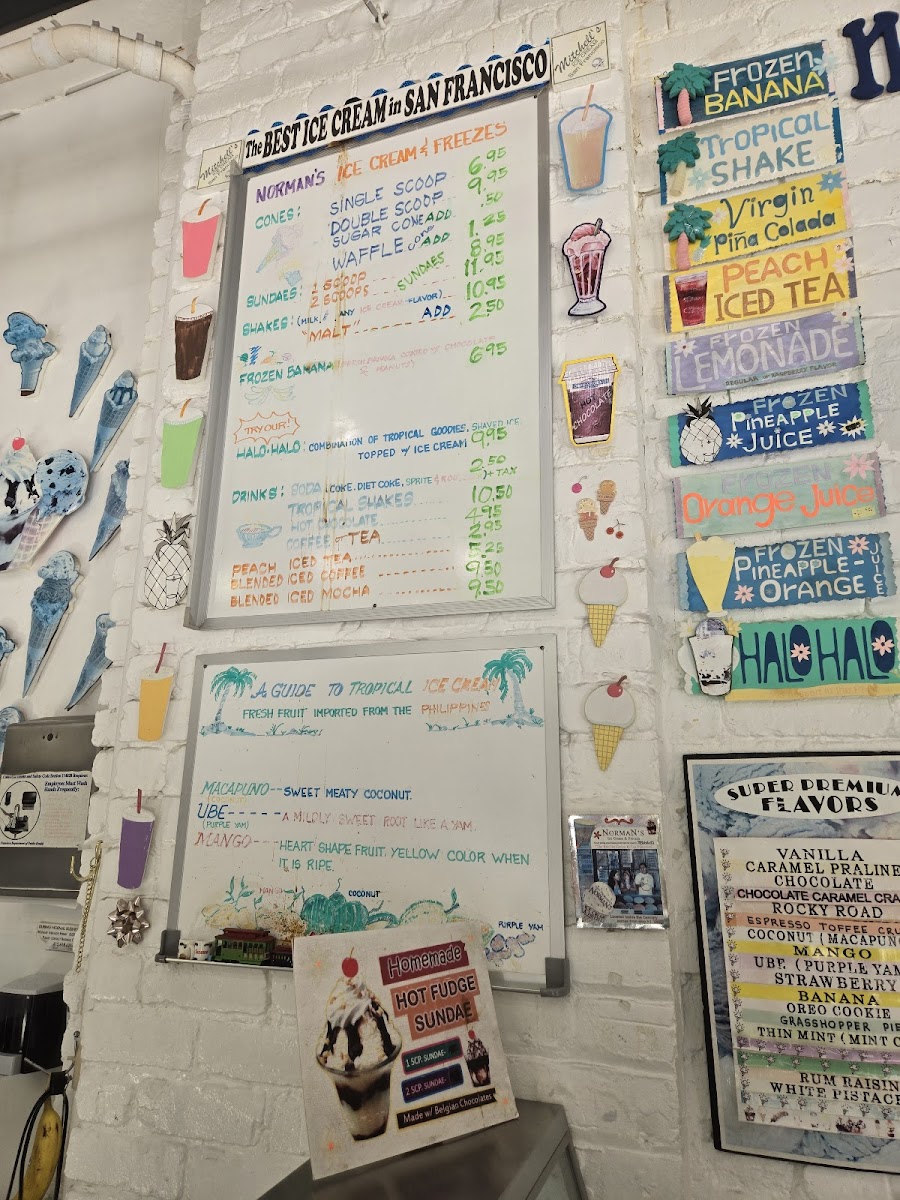 Mitchell's
ICE CREAM
San Francisco
The BEST ICE CREAM in SAN FRANCISCO
Mitchell's
NORMAN'S ICE CREAM & FREEZES
CONES: SINGLE SCOOP 6.95
DOUBLE SCOOP 9.95
SUGAR CONE ADD .50
WAFFLE CONE ADD 1.25
SUNDAES
SUNDAES: 1 SCOOP 8.95
2 SCOOPS 11.95
SHAKES: (MILK & ANY ICE CREAM FLAVOR) 10.95
"MALT" ADD 2.50
FROZEN BANANA 6.95
TRY OUR!
HALO-HALO: COMBINATION OF TROPICAL GOODIES, SHAVED ICE
TOPPED W/ ICE CREAM 9.95
DRINKS: SODA (COKE, DIET COKE, SPRITE + TAX 2.50
TROPICAL SHAKES 10.50
HOT CHOCOLATE 4.95
COFFEE or TEA 2.95
PEACH ICED TEA
BLENDED ICED COFFEE
BLENDED ICED MOCHA 9.50
HOT
CHOCOLATE
A GUIDE TO TROPICAL ICE CREAM
FRESH FRUIT IMPORTED FROM THE PHILIPPINES
MACAPUNO -- SWEET MEATY COCONUT.
UBE ----- A MILDLY SWEET ROOT LIKE A YAM.
(PURPLE YAM)
MANGO --- HEART SHAPE FRUIT, YELLOW COLOR WHEN
IT IS RIPE.
MANGO
COCONUT
PURPLE YAM
Employees Must Wash
Hands Frequently:
NORMAN'S
Homemade
HOT FUDGE
SUNDAE
1 SCP. SUNDAE-
2 SCP. SUNDAE-
Made w/ Belgian Chocolates
FROZEN
BANANA
TROPICAL
SHAKE
Virgin
Piña Colada
PEACH
ICED TEA
FROZEN
LEMONADE
REGULAR or RASPBERRY FLAVOR
FROZEN
PINEAPPLE
JUICE
FROZEN
Orange Juice
FROZEN
PINEAPPLE-
ORANGE
JUICE
HALO HALO
SUPER PREMIUM
FLAVORS
VANILLA
CARAMEL PRALINE
CHOCOLATE
CHOCOLATE CARAMEL CRA
ROCKY ROAD
ESPRESSO TOFFEE CRU
COCONUT (MACAPUNO
MANGO
UBE (PURPLE YAM
STRAWBERRY
BANANA
OREO COOKIE
GRASSHOPPER PIE
THIN MINT (MINT C
RUM RAISIN
WHITE PISTAC